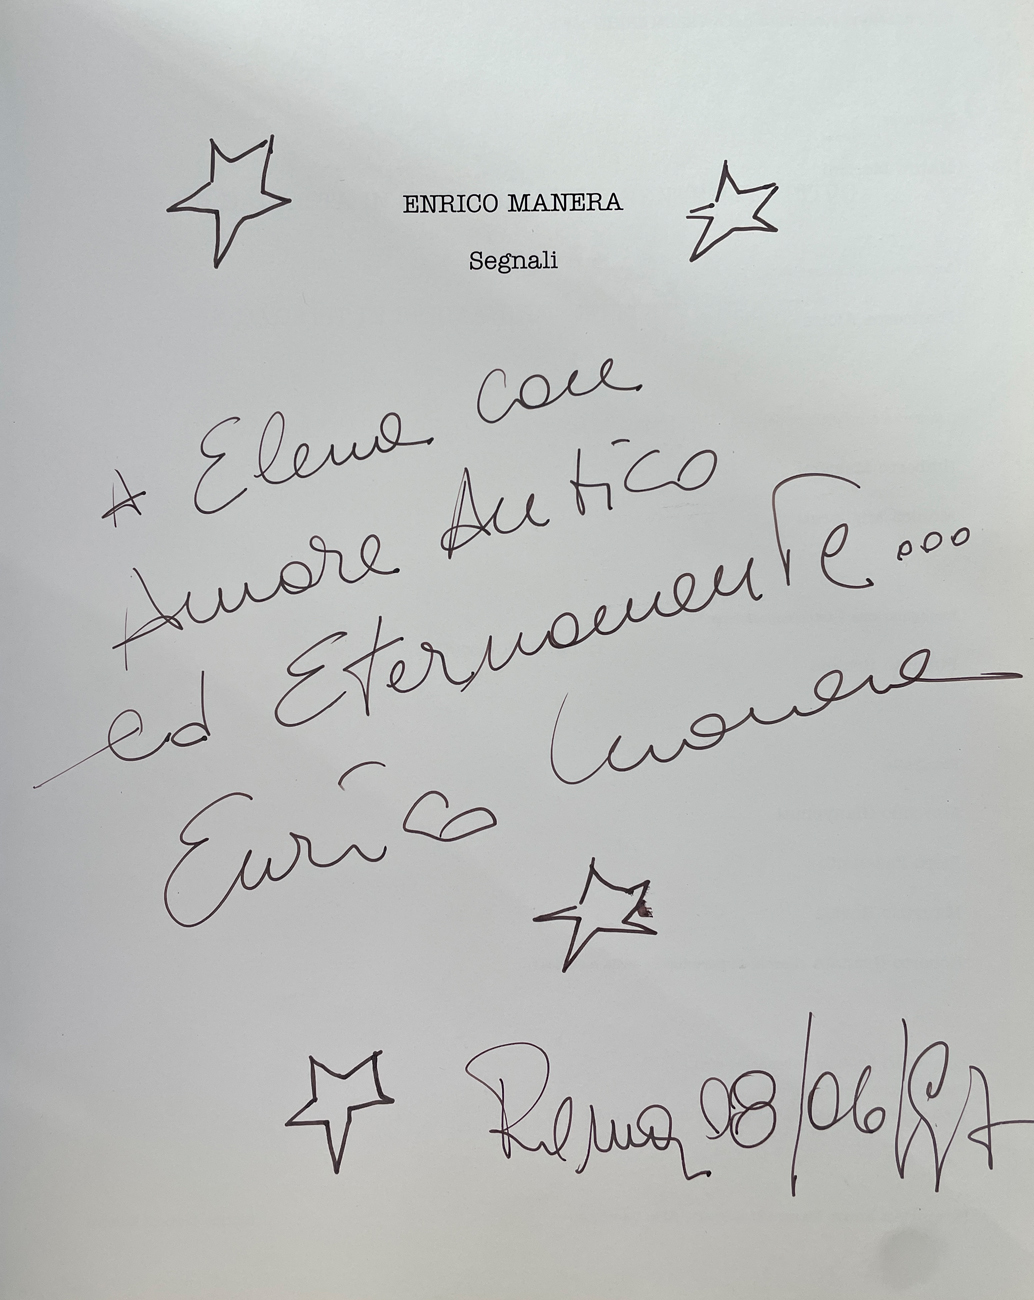 ENRICO MANERA
Segnali
A Elena con
Amore Antico
ed Eternamente...
Enrico Manera
Roma 08/06/